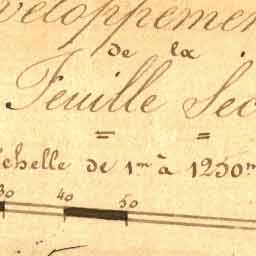 veloppemen
de la
Feuille Sec
Échelle de 1m à 1250m
30 40 50